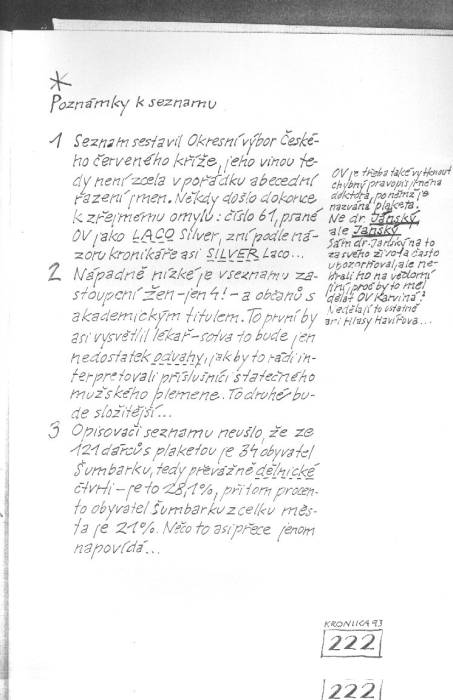 *
Poznámky k seznamu
1 Seznam sestavil Okresní výbor České-
ho červeného kříže, jeho vinou te-
dy není zcela v pořádku abecední
řazení jmen. Někdy došlo dokonce
k zřejmému omylu: číslo 61, psané
OV jako LACO Silver, zní podle ná-
zoru kronikáře asi SILVER Laco...
2 Nápadně nízké je v seznamu za-
stoupení žen - jen 4! - a občanů s
akademickým titulem. To první by
asi vysvětlil lékař - sotva to bude jen
nedostatek odvahy, jak by to rádi in-
terpretovali příslušníci statečného
mužského plemene. To druhé bu-
de složitější...
3 Opisovači seznamu neušlo, že ze
121 dárců s plaketou je 34 obyvatel
Šumbarku, tedy převážně dělnické
čtvrti - je to 28,1%, přitom procen-
to obyvatel Šumbarku z celku měs-
ta je 21%. Něco to asi přece jenom
napovídá...
OV je třeba také vytknout
chybný pravopis jména
doktora, po němž je
nazvána plaketa.
Ne dr. Jánský,
ale Janský
Sám dr. Janský na to
za svého života často
upozorňoval, ale ne-
brali ho na vědomí
jiní, proč by to měl
dělat OV Karviná?
Nedělají to ostatně
ani Hlasy Havířova...
KRONIKA 93
222
222